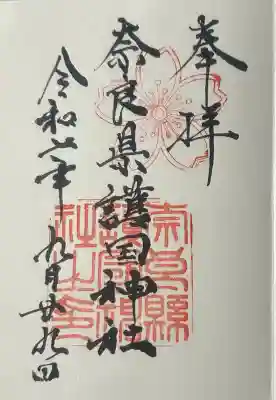 奉拝
奈良県護国神社
令和七年 九月廿九日
奈良縣
護國神
社之印